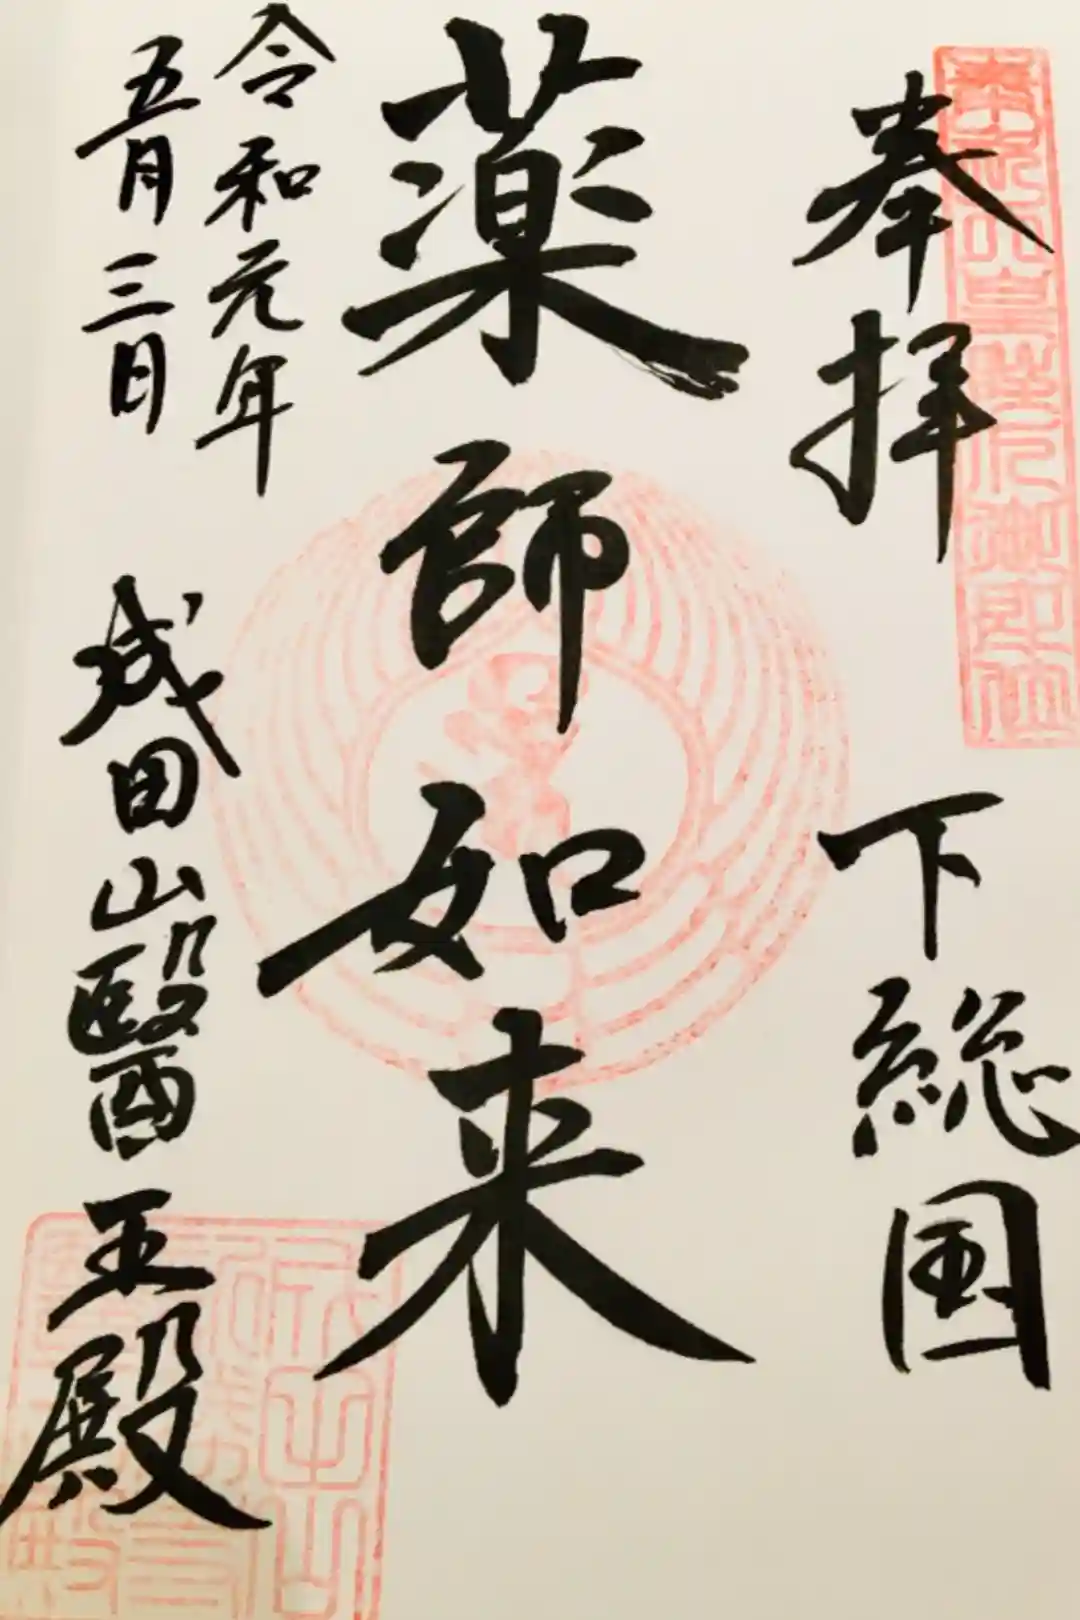 奉拝 下総国
薬師如来
令和元年
五月三日
成田山醫王殿